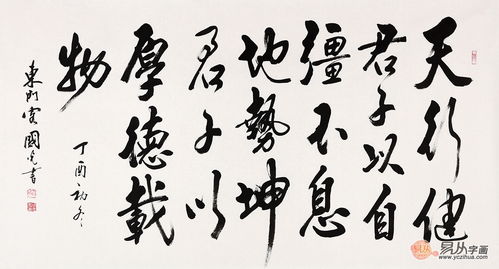 天行健
君子以自
彊不息
地勢坤
君子以
厚德載
物
丁酉初冬
東門
國
書
易从字画
www.yczihua.com